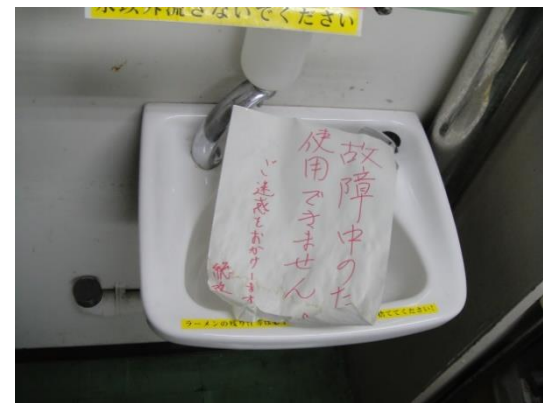 水以外流さないでください
故障中のた
使用できません。
ご迷惑をおかけします
ラーメンの残り汁等は
捨ててください!